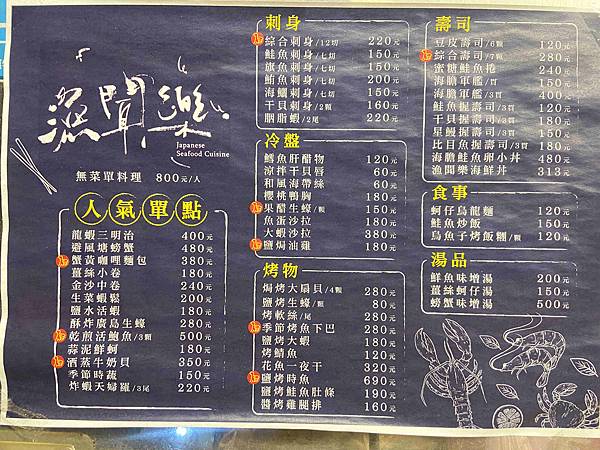 漁聞樂
Japanese
Seafood Cuisine
無菜單料理 800元/人
人氣單點
龍蝦三明治 400元
避風塘螃蟹 480元
蟹黃咖哩麵包 380元
薑絲小卷 180元
金沙中卷 240元
生菜蝦鬆 200元
鹽水活蝦 180元
酥炸廣島生蠔 280元
乾煎活鮑魚/3顆 500元
蒜泥鮮蚵 180元
酒蒸牛奶貝 350元
季節時蔬 150元
炸蝦天婦羅/3尾 220元
刺身
綜合刺身/12切 220元
鮭魚刺身/七切 150元
旗魚刺身/七切 150元
鮪魚刺身/七切 150元
海鱺刺身/七切 150元
干貝刺身/2顆 160元
胭脂蝦/2尾 220元
冷盤
鱈魚肝醋物 120元
涼拌干貝唇 60元
和風海帶絲 60元
櫻桃鴨胸 180元
果醋生蠔/顆 150元
魚蛋沙拉 180元
大蝦沙拉 380元
鹽焗油雞 180元
烤物
焗烤大扇貝/4顆 280元
鹽烤生蠔/顆 80元
烤軟絲/尾 280元
季節烤魚下巴 280元
鹽烤大蝦 180元
烤鯖魚 120元
花魚一夜干 320元
鹽烤時魚 690元
鹽烤鮭魚肚條 190元
醬烤雞腿排 160元
壽司
豆皮壽司/6顆 120元
綜合壽司/7顆 280元
蜜糖鮭魚捲 240元
海膽軍艦/貫 150元
海膽軍艦/3貫 400元
鮭魚握壽司/3貫 120元
干貝握壽司/3貫 180元
星鰻握壽司/3貫 180元
比目魚握壽司/3貫 180元
海膽鮭魚卵小丼 480元
漁聞樂海鮮丼 313元
食事
蚵仔烏龍麵 120元
鮭魚炒飯 150元
烏魚子烤飯糰/顆 120元
湯品
鮮魚味增湯 200元
薑絲蚵仔湯 150元
螃蟹味增湯 500元